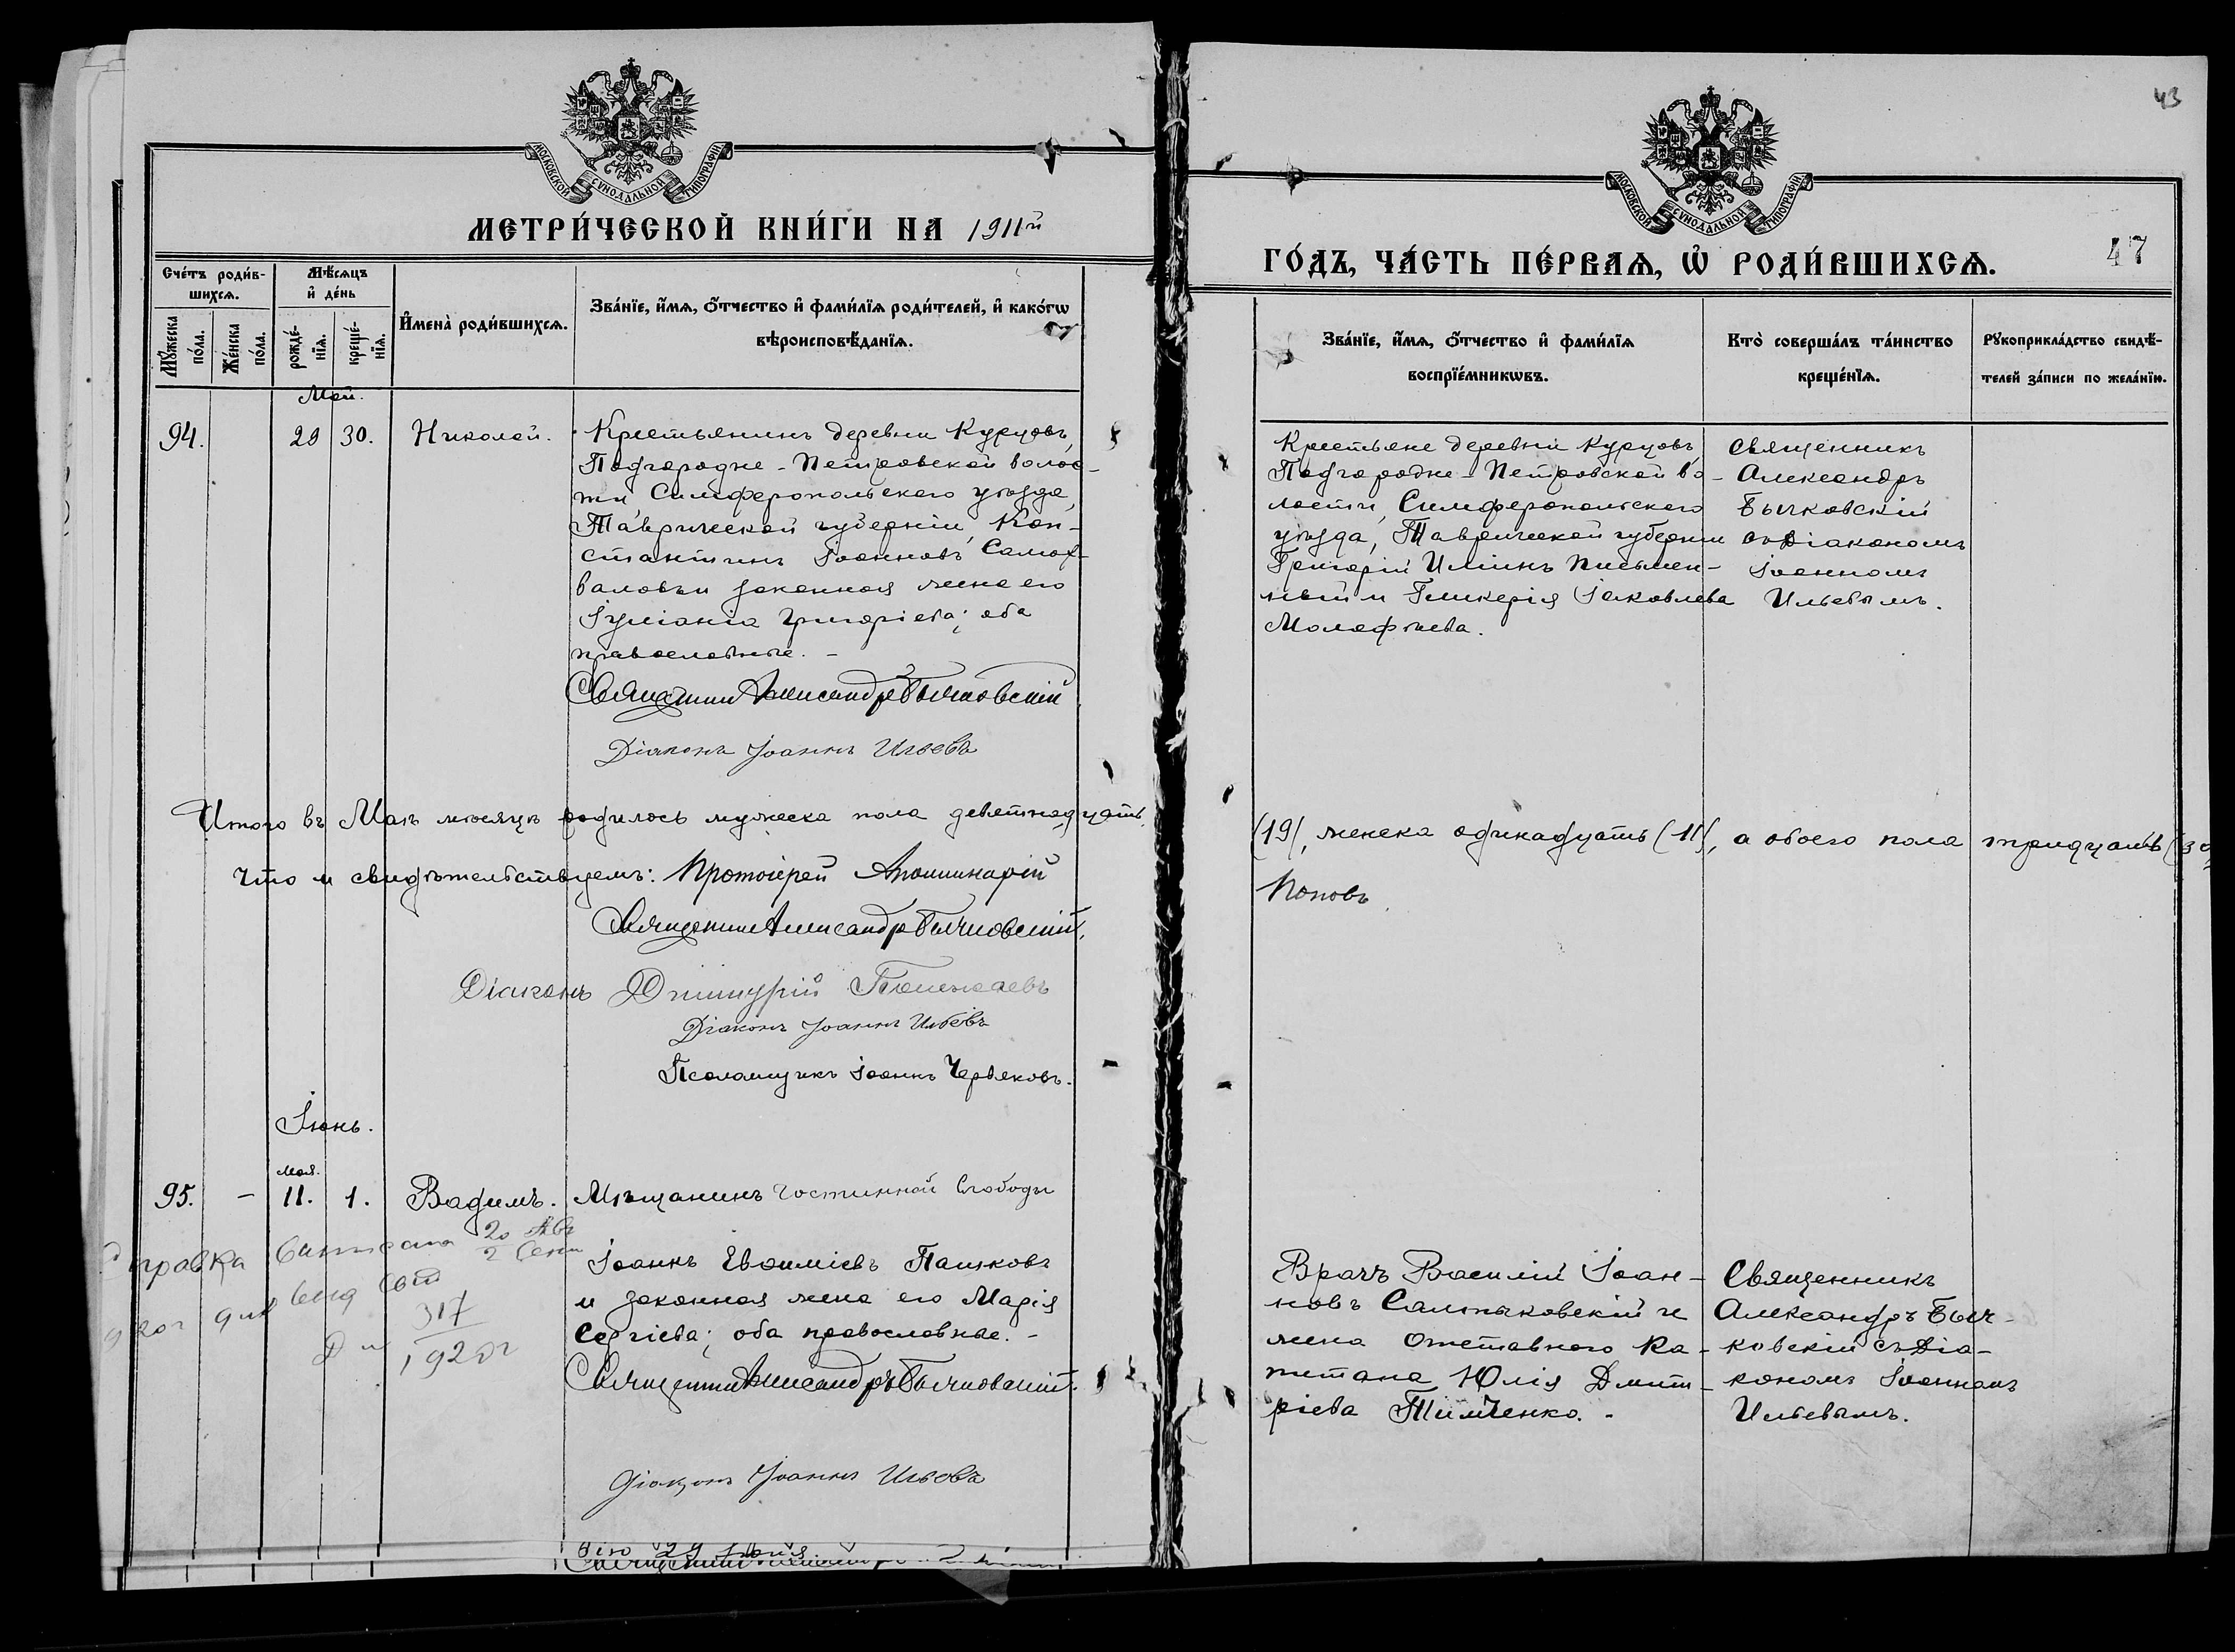 МОСКОВСКОЙ СѴНОДАЛЬНОЙ ТИПОГРАФІИ
МЕТРИ́ЧЕСКОЙ КНИ́ГИ НА 1911й
Сче́тъ роди́в-
шихсѧ.
Мѣ́сѧцъ
и҆ де́нь
Мꙋ́жеска
по́ла.
Же́нска
по́ла.
рожде́-
нїѧ.
креще́-
нїѧ.
И҆мена̀ роди́вшихсѧ.
Зва́нїе, и҆́мѧ, ѻ҆́тчество и҆ фами́лїѧ роди́телей, и҆ како́гѡ
вѣроисповѣ́данїѧ.
Май.
94.
29
30.
Николай.
Крестьянинъ деревни Курцовъ,
Подгородне-Петровской волос-
ти Симферопольскаго уѣзда,
Таврической губерніи, Кон-
стантинъ Іоанновъ Самох-
валовъ и законная жена его
Іуліанія Григоріева; оба
православные. -
Священникъ Александръ Бычковскій
Діаконъ Іоаннъ Ильевъ
Итого въ Маѣ мѣсяцѣ родилось мужеска пола девятнадцать
Что и свидѣтельствуемъ: Протоіерей Аполлинарій
Священникъ Александръ Бычковскій.
Діаконъ Димитрій
Діаконъ Іоаннъ Ильевъ
Псаломщикъ Іоаннъ Червяковъ.
Іюнь.
мая.
95.
-
11.
1.
Вадимъ.
Мѣщанинъ Гостинной Слободы
Іоаннъ Евѳиміевъ Пашковъ
и законная жена его Марія
Сергіева; оба православные. -
Священникъ Александръ Бычковскій.
Діаконъ Іоаннъ Ильевъ
Справка
20 Авг
2 Сент
317
1920г
43
МОСКОВСКОЙ СѴНОДАЛЬНОЙ ТИПОГРАФІИ
ГО́ДЪ, ЧА́СТЬ ПЕ́РВАѦ, Ѡ҆ РОДИ́ВШИХСѦ.
47
Зва́нїе, и҆́мѧ, ѻ҆́тчество и҆ фами́лїѧ
воспрїе́мникѡвъ.
Кто̀ соверша́лъ та́инство
креще́нїѧ.
Рꙋкоприкла́дство свидѣ́-
телей за́писи по жела́нїю.
Крестьяне деревни Курцовъ,
Подгородне-Петровской во-
лости, Симферопольскаго
уѣзда, Таврической губерніи
Григорій Ильинъ Письмен-
ный и Гликерія Іаковлева
Малафѣева.
Священникъ
Александръ
Бычковскій
съ Діакономъ
Іоанномъ
Ильевымъ.
(19), женска одинадцать (11), а обоего пола тридцать (30)
Поповъ
Врачъ Василій Іоан-
новъ Салтыковскій и
жена Отставного Ка-
питана Юлія Дмит-
ріева Тимченко. -
Священникъ
Александръ Быч-
ковскій съ Діа-
кономъ Іоанномъ
Ильевымъ.